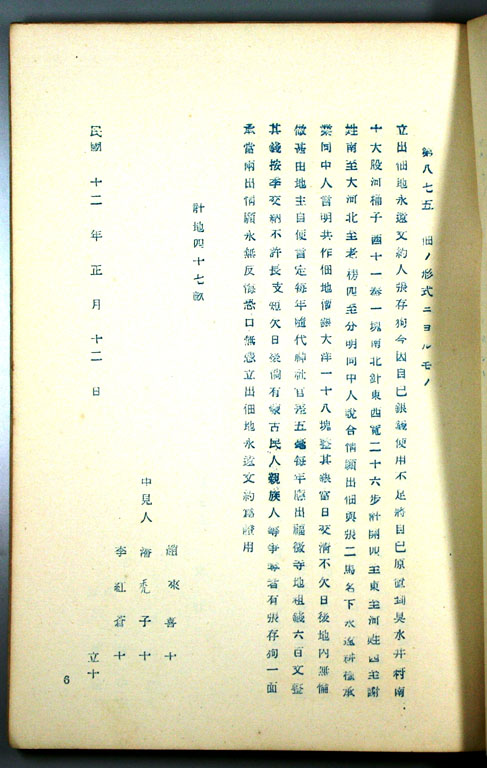 第八七五 佃ノ形式ニヨルモノ
立出佃地永遠文約人張存狗今因自己銀錢使用不足將自己原置到吳水井村南
十大段河楠子西十一一塊南北計東西寬二十六步計開四至東至河姓西至謝
姓南至大河北至老楞四至分明同中人說合情願出佃與張二馬名下永遠耕種承
業同中人言明共作佃地價銀大洋一十八塊整其銀當日交清不欠日後地內無論
做甚由地主自便言定每年隨代神社官差五每年應出福徵寺地租錢六百文整
其錢按季交納不許長支短欠日後倘有蒙古民人親族人等爭奪者有張存狗一面
承當兩出情願永無反悔恐口無憑立出佃地永遠文約爲證用
計地四十七畝
民國 十二 年 正 月 十二 日
中見人
趙來喜十
潘禿子十
李紅蒼十
立十
6